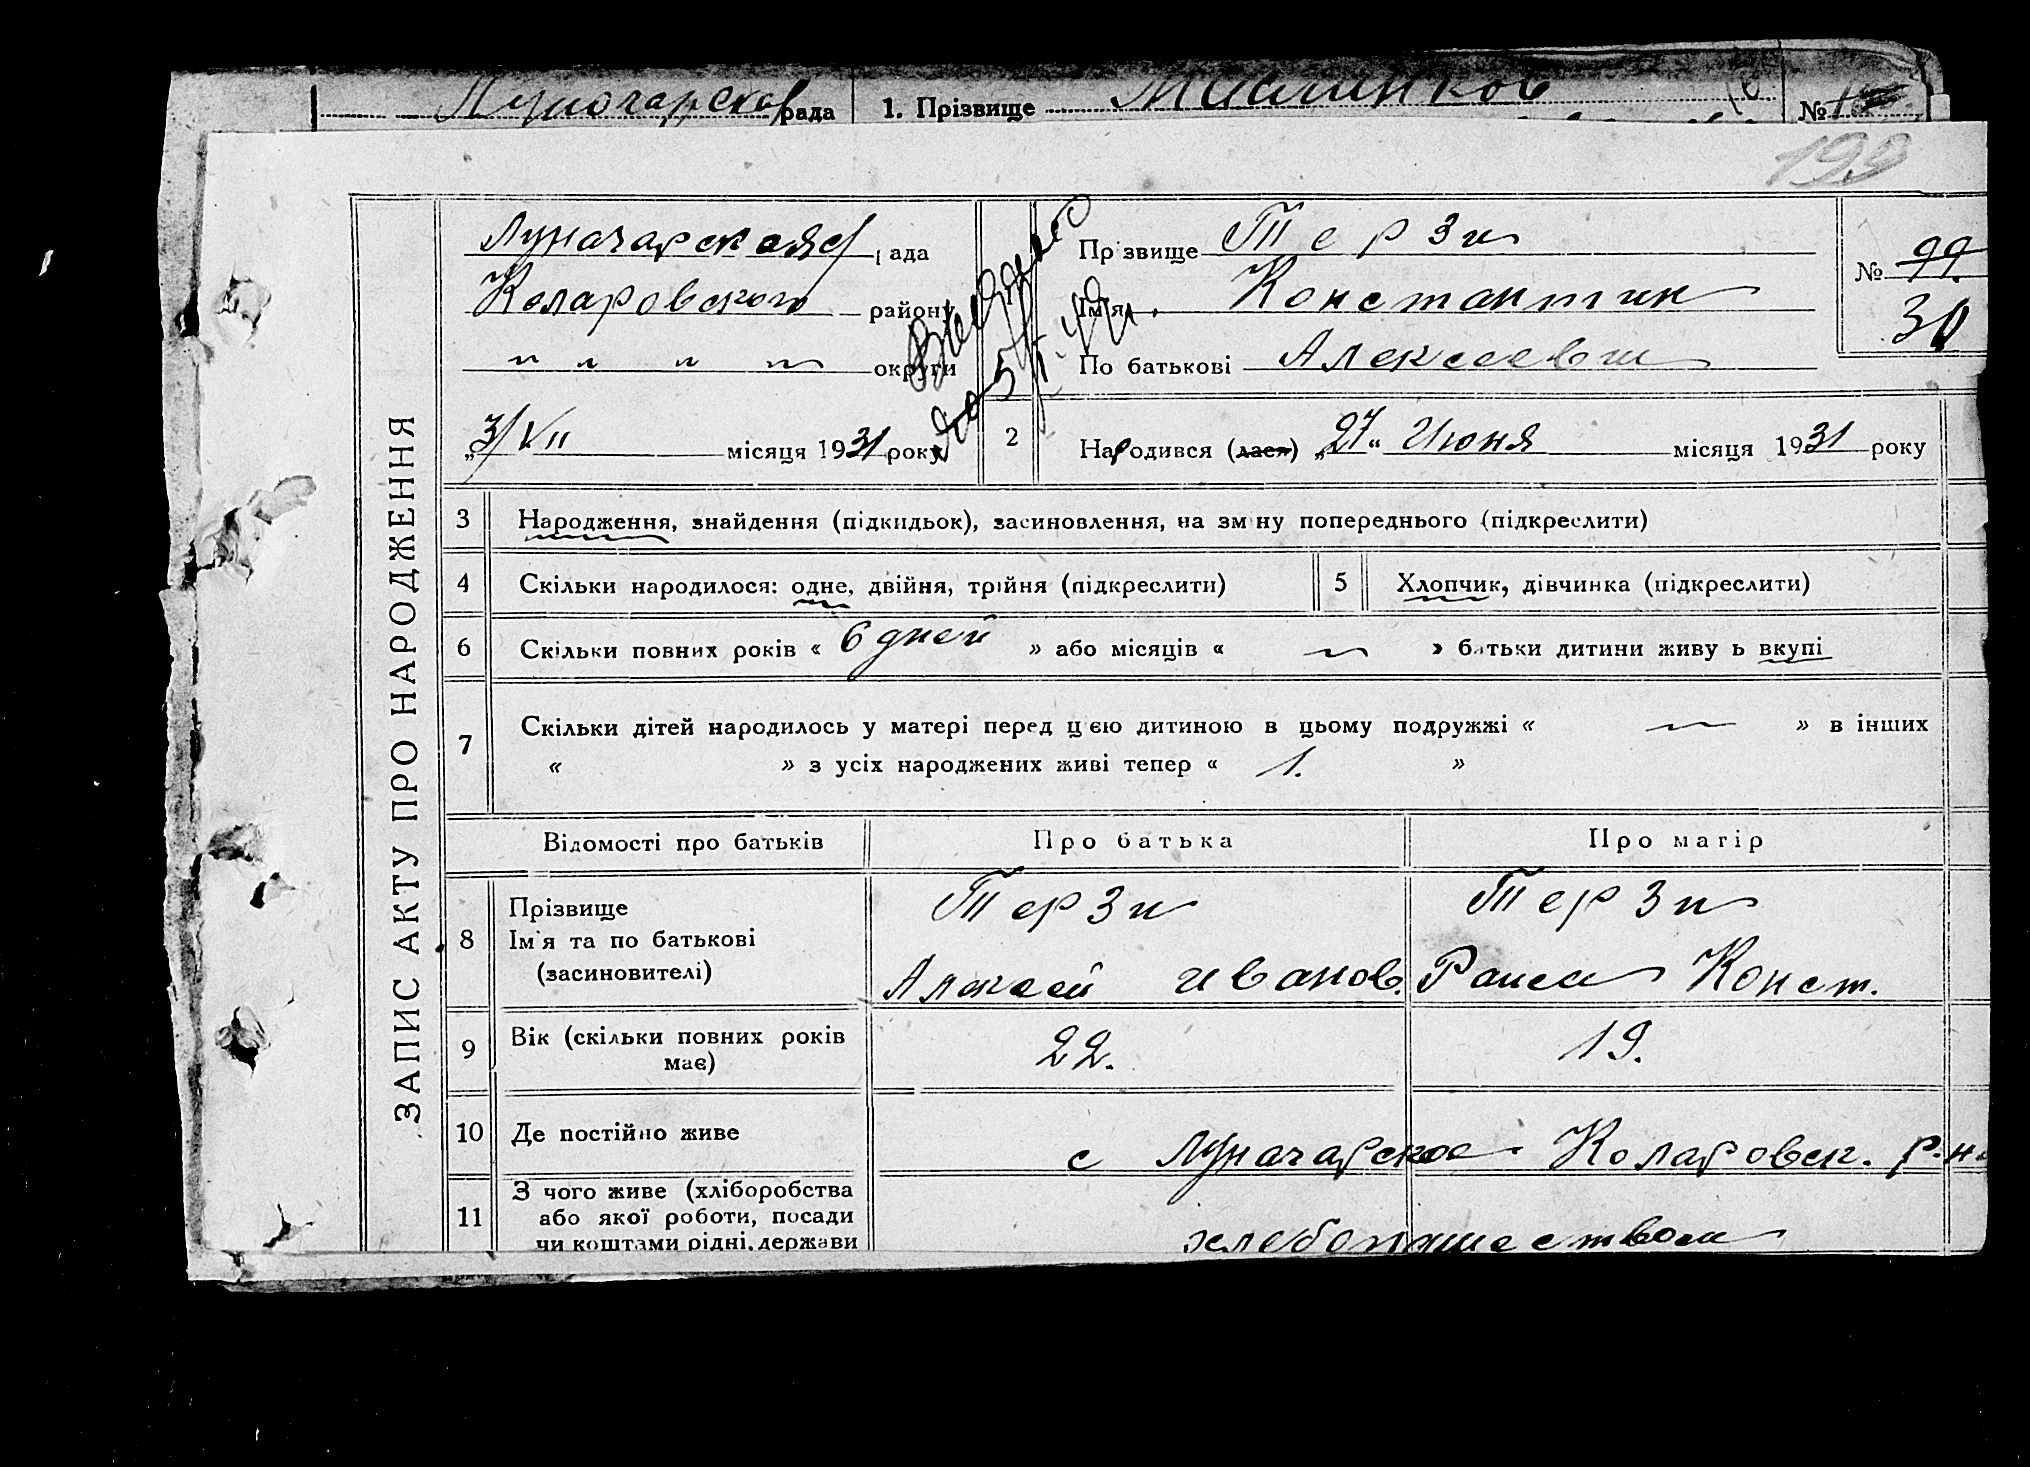 Луначарская рада 1. Прізвище №
199
ЗАПИС АКТУ ПРО НАРОДЖЕННЯ
Луначарская с/рада
Коларовского району
" " " " округи
„3/VII місяця 1931 року
до 5/
2
Пр звище Терзи
Ім'я Константин
По батькові Алексеевич
№ 99.
30
Народився (лася) „27“ Июня місяця 1931 року
3 Народження, знайдення (підкидьок), засиновлення, на зм ну попереднього (підкреслити)
4 Скільки народилося: одне, двійня, трійня (підкреслити) 5 Хлопчик, дівчинка (підкреслити)
6 Скільки повних років « 6 дней » або місяців « — » батьки дитини живу ь вкупі
7 Скільки дітей народилось у матері перед цією дитиною в цьому подружжі « — » в інших
« » з усіх народжених живі тепер « 1. »
Відомості про батьків Про батька Про матір
8 Прізвище Терзи Терзи
Ім'я та по батькові
(засиновителі) Алексей Иванов. Раиса Конст.
9 Вік (скільки повних років має) 22. 19.
10 Де постійно живе с Луначарское Коларовск. р-н.
11 З чого живе (хліборобства
або якої роботи, посади
чи коштами рідні, держави хлебопашеством